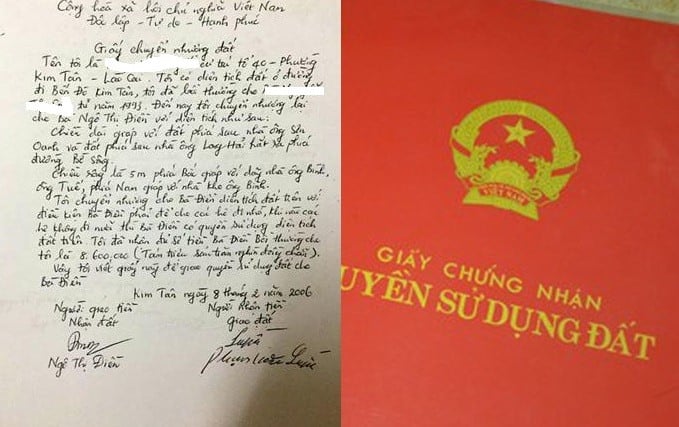 Cộng hoà xã hội chủ nghĩa Việt Nam
Độc lập - Tự do - Hạnh phúc
Giấy chuyển nhượng đất
Tên tôi là cư trú tổ 40 - Phường
Kim Tân - Lào Cai. Tôi có diện tích đất ở đường
đi Bến Đá Kim Tân, tôi đã bồi thường cho
từ năm 1993. Đến nay tôi chuyển nhượng lại
cho Bà Ngô Thị Điền với diện tích như sau:
Chiều dài giáp với đất phía sau nhà ông Sơn
Oanh và đất phía sau nhà ông Long Hải hất ra phía
đường Bờ Sông.
Chiều rộng là 5m phía Bắc giáp với dãy nhà ông Bình,
ông Tuế, phía Nam giáp với nhà kho ông Bình.
Tôi chuyển nhượng cho Bà Điền diện tích đất trên với
điều kiện Bà Điền phải để cho các hộ đi nhờ, khi nào các
hộ không đi nữa thì Bà Điền có quyền sử dụng diện tích
đất trên. Tôi đã nhận đủ số tiền Bà Điền Bồi thường cho
tôi là 8.600.000 (Tám triệu sáu trăm nghìn đồng chẵn).
Vậy tôi viết giấy này để giao quyền sử dụng đất cho
Bà Điền
Kim Tân ngày 8 tháng 2 năm 2006
Người giao tiền
Nhận đất
Ngô Thị Điền
Người Nhận tiền
giao đất
GIẤY CHỨNG NHẬN
UYỀN SỬ DỤNG ĐẤT